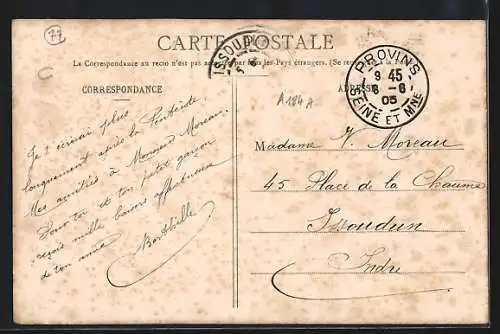 77
CARTE POSTALE
ISSOUDUN
La Correspondance au recto n'est pas acceptée par tous les Pays étrangers. (Se
CORRESPONDANCE
ADRESSE
PROVINS
9 45
8-6
05
SEINE ET MNE
A184A
Je t'écrirai plus
longuement après la Pentecôte
Mes amitiés à Monsieur Moreau.
Pour toi et ton petit garçon
reçois mille baisers affectueux
de ton amie
Berthille
Madame V. Moreau
45 Place de la Chaume
Issoudun
Indre